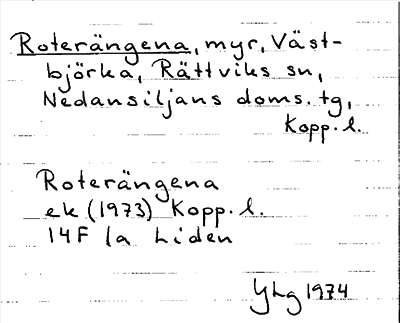 Roterängena, myr, Väst-
björka, Rättviks sn,
Nedansiljans doms. tg,
Kopp. l.
Roterängena
ek (1973) Kopp. l.
14F 1a Liden
YLg 1974